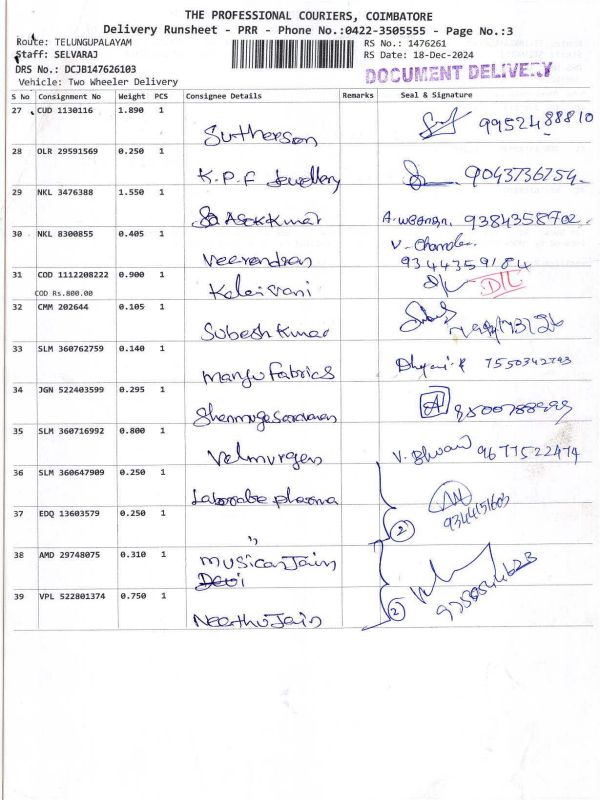 THE PROFESSIONAL COURIERS, COIMBATORE
Delivery Runsheet - PRR - Phone No.:0422-3505555 - Page No.:3
Route: TELUNGUPALAYAM RS No.: 1476261
Staff: SELVARAJ RS Date: 18-Dec-2024
DRS No.: DCJB147626103 DOCUMENT DELIVERY
Vehicle: Two Wheeler Delivery
S No Consignment No Weight PCS Consignee Details Remarks Seal & Signature
27 CUD 1130116 1.890 1 Sutherson 9952488810
28 OLR 29591569 0.250 1 K.P.F Jewellery 9043736254
29 NKL 3476388 1.550 1 Asokkumar 9384358702
30 NKL 8300855 0.405 1 Veerendran V. Chandra
9344359184
31 COD 1112208222 0.900 1 Kalaivani D/L
COD Rs.800.00
32 CMM 202644 0.105 1 Subesh Kumar
33 SLM 360762759 0.140 1 Manju Fabrics 7550342793
34 JGN 522403599 0.295 1 Shanmugasaravanan
35 SLM 360716992 0.800 1 Velmurgen 9677522474
36 SLM 360647909 0.250 1 pharma
37 EDQ 13603579 0.250 1 ,, 2 9344151603
38 AMD 29748075 0.310 1 Jain
39 VPL 522801374 0.750 1 Neethu Jain 2